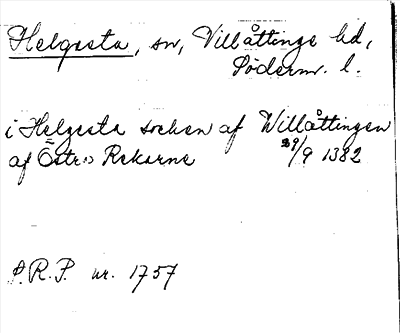 Helgesta, sn, Villåttinge hd,
Söderm. l.
i Helgesta sochen af Willåttingen
af Östra Rekarne 29/9 1382
S.R.P. nr. 1757